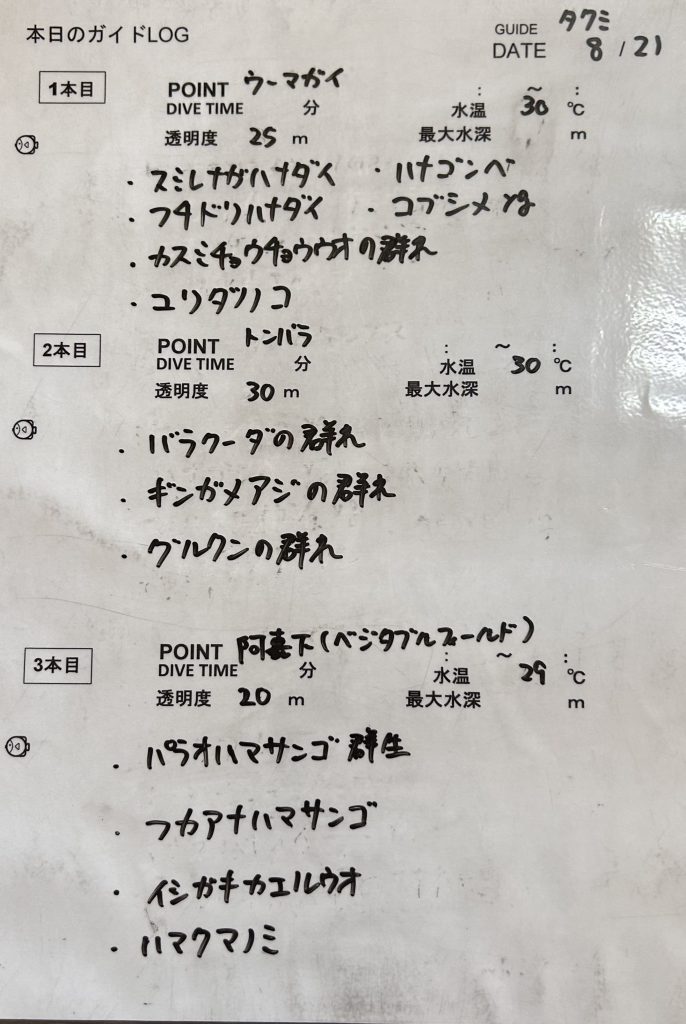 本日のガイドLOG
GUIDE タクミ
DATE 8 / 21
1本目 POINT ウーマガイ : ~ :
DIVE TIME 分 水温 30 ℃
透明度 25 m 最大水深 m
・スミレナガハナダイ ・ハナゴンベ
・フチドリハナダイ ・コブシメ yg
・カスミチョウチョウウオの群れ
・ユリタツノコ
2本目 POINT トンバラ : ~ :
DIVE TIME 分 水温 30 ℃
透明度 30 m 最大水深 m
・バラクーダの群れ
・ギンガメアジの群れ
・グルクンの群れ
3本目 POINT 阿嘉下(ベジタブルフィールド) : ~ :
DIVE TIME 分 水温 29 ℃
透明度 20 m 最大水深 m
・パラオハマサンゴ 群生
・フカアナハマサンゴ
・イシガキカエルウオ
・ハマクマノミ